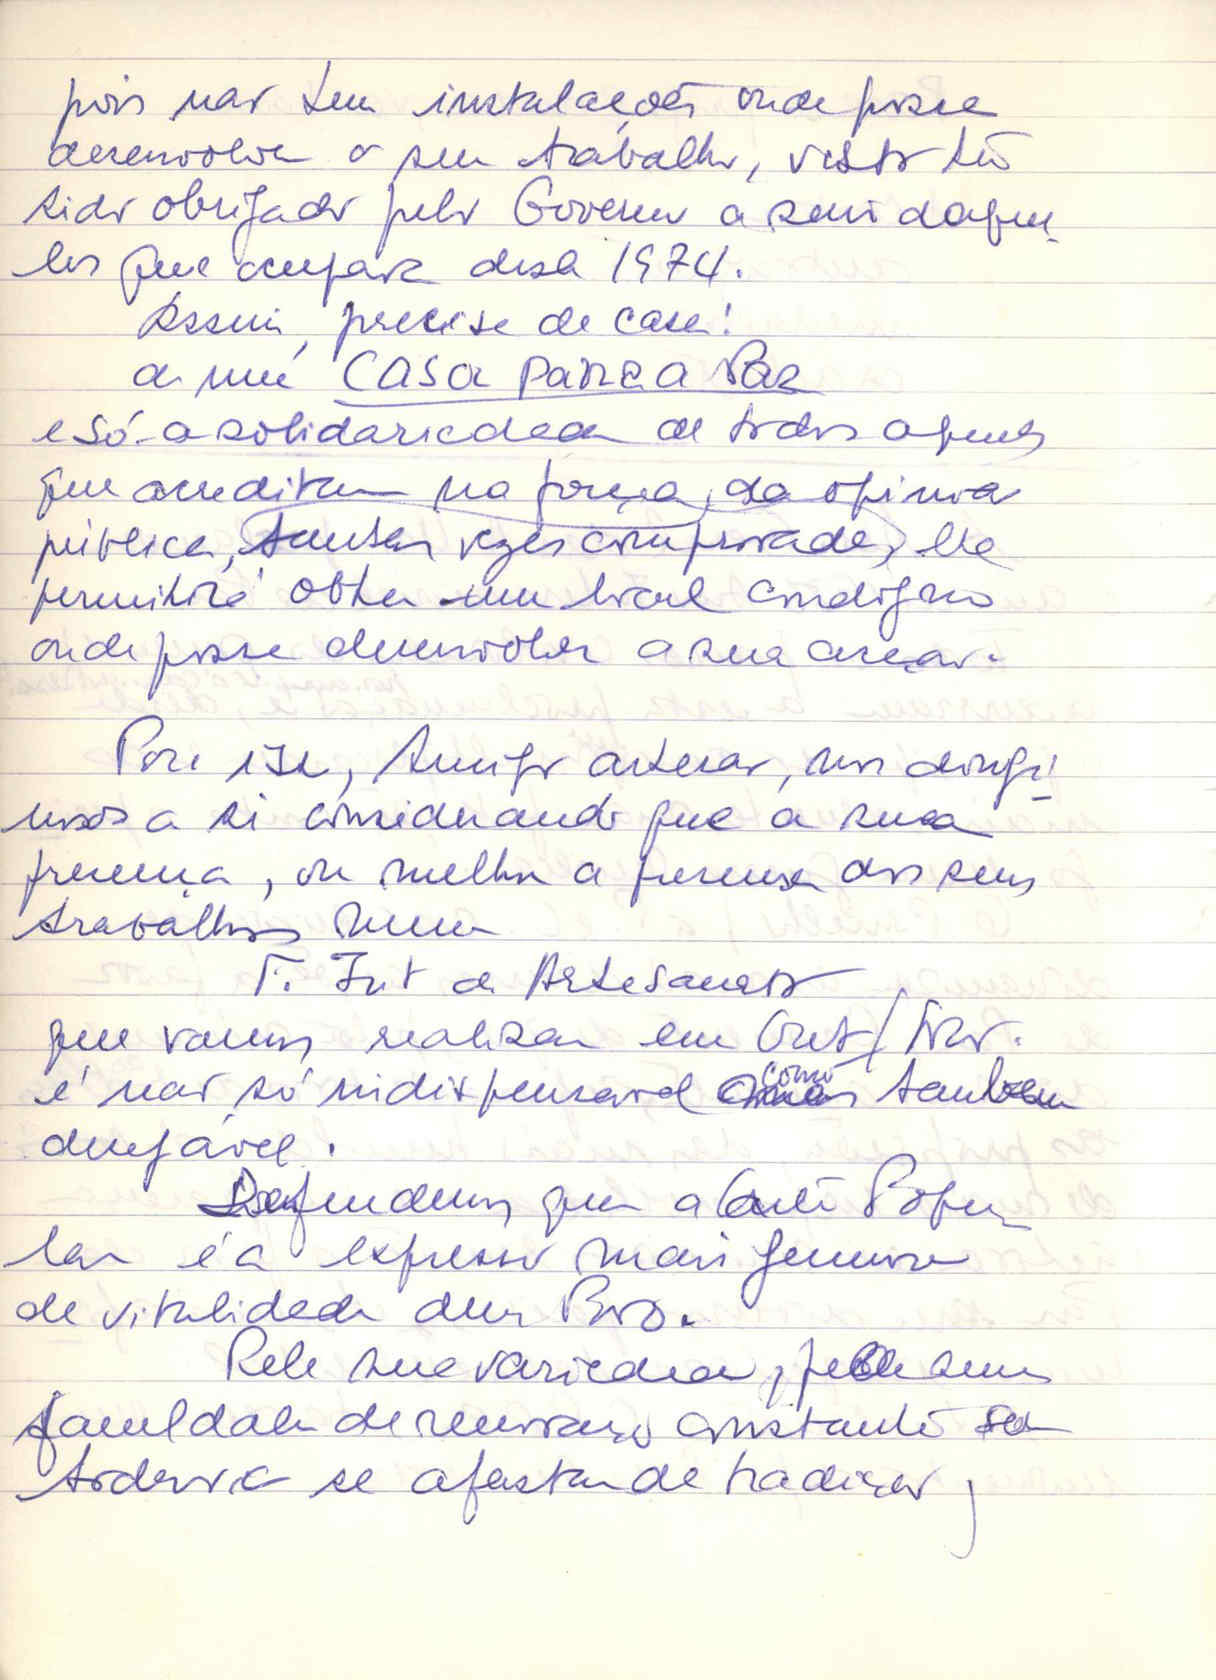 pois não tem instalações onde possa
desenvolver o seu trabalho, visto ter
sido obrigado pelo Governo a sair daque-
les que ocupava desde 1974.
Assim, precisa de casa!
de uma CASA PARA A Paz
e só a solidariedade de todos aqueles
que acreditam na força da opinião
pública, tantas vezes comprovada, lhe
permitirá obter um local condigno
onde possa desenvolver a sua acção.
Por isso, Amigo artesão, nos dirigi-
mos a si considerando que a sua
presença, ou melhor a presença dos seus
trabalhos numa
F. Int de Artesanato
que vamos realizar em Out/Nov.
é não só indispensável como também
desejável.
Defendemos que a Arte Popu
lar é a expressão mais genuina
de vitalidade dum Povo.
Pela sua variedade, pela sua
faculdade de renovação constante sem
todavia se afastar de tradição,